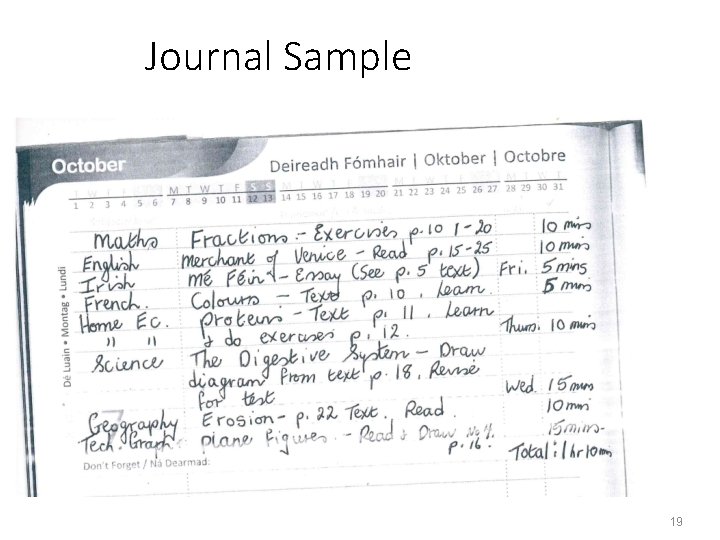 Journal Sample
October Deireadh Fómhair | Oktober | Octobre
M T W T F S S
1 2 3 4 5 6 7 8 9 10 11 12 13 14 15 16 17 18 19 20 21 22 23 24 25 26 27 28 29 30 31
Dé Luain • Montag • Lundi
Maths Fractions - Exercises p.10 1-20 10 mins
English Merchant of Venice - Read p.15-25 10 mins
Irish Mé Féin - Essay (See p.5 text) Fri. 5 mins
French. Colours - Text p. 10, Learn. 5 mins
Home Ec. Proteins - Text p. 11, Learn
" " & do exercises p. 12. Thurs. 10 mins
Science The Digestive System - Draw
diagram from text p.18, Revise
for test Wed 15 mins
7
Geography Erosion - p. 22 Text, Read. 10 min
Tech. Graph. Plane Figures. - Read & Draw 15 mins.
p.16. Total: 1 hr 10 min
Don't Forget / Ná Dearmad:
19